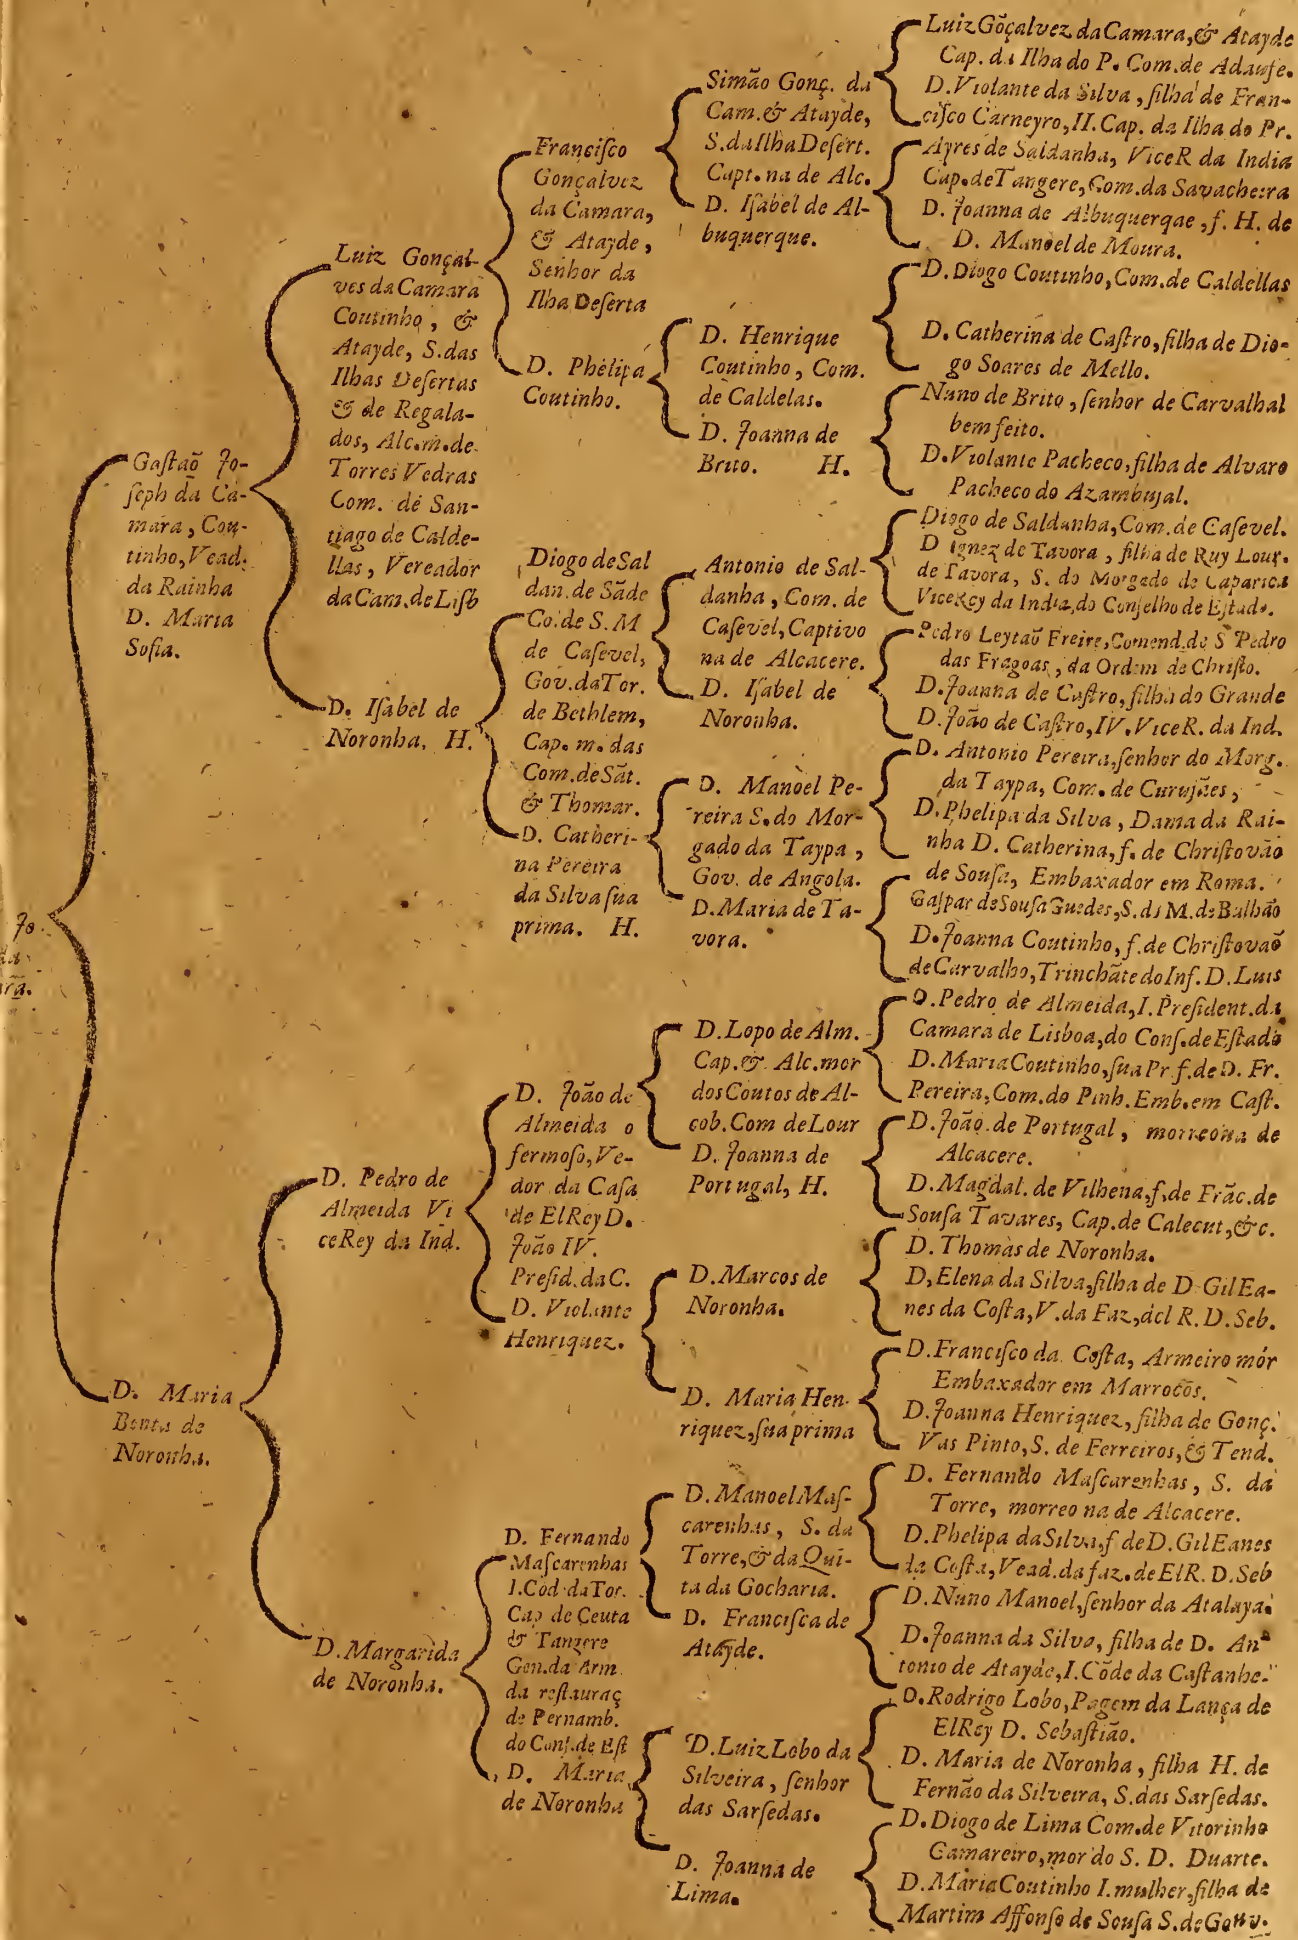 Jo-
da
ara.
Gastaõ Jo-
seph da Ca-
mara, Cou-
tinho, Vead.
da Rainha
D. Maria
Sofia.
D. Maria
Benta de
Noronha.
Luiz Gonçal-
ves da Camara
Coutinho, &
Atayde, S. das
Ilhas Desertas
& de Regala-
dos, Alc. m. de
Torres Vedras
Com. de San-
tiago de Calde-
llas, Vereador
da Cam. de Lisb
D. Isabel de
Noronha. H.
D. Pedro de
Almeida Vi
ceRey da Ind.
D. Margarida
de Noronha.
Francisco
Gonçalvez
da Camara,
& Atayde,
Senhor da
Ilha Deserta
D. Phelipa
Coutinho.
Diogo de Sal
dan. de Sãde
Co. de S. M
de Casevel,
Gov. da Tor.
de Bethlem,
Cap. m. das
Com. de Sãt.
& Thomar.
D. Catheri-
na Pereira
da Silva sua
prima. H.
D. João de
Almeida o
fermoso, Ve-
dor da Casa
de ElRey D.
João IV.
Presid. da C.
D. Violante
Henriquez.
D. Fernando
Mascarenhas
I. Cõd. da Tor.
Cap de Ceuta
& Tangere
Gen. da Arm.
da restauraç
de Pernamb.
do Cons. de Est
D. Maria
de Noronha
Simão Gonç. da
Cam. & Atayde,
S. da Ilha Desert.
Capt. na de Alc.
D. Isabel de Al-
buquerque.
D. Henrique
Coutinho, Com.
de Caldelas.
D. Joanna de
Brito. H.
Antonio de Sal-
danha, Com. de
Casevel, Captivo
na de Alcacere.
D. Isabel de
Noronha.
D. Manoel Pe-
reira S. do Mor-
gado da Taypa,
Gov. de Angola.
D. Maria de Ta-
vora.
D. Lopo de Alm.
Cap. & Alc. mor
dos Coutos de Al-
cob. Com de Lour
D. Joanna de
Portugal, H.
D. Marcos de
Noronha.
D. Maria Hen-
riquez, sua prima
D. Manoel Mas-
carenhas, S. da
Torre, & da Qui-
ta da Gocharia.
D. Francisca de
Atayde.
D. Luiz Lobo da
Silveira, senhor
das Sarsedas.
D. Joanna de
Lima.
Luiz Gõçalvez da Camara, & Atayde
Cap. da Ilha do P. Com. de Adaufe.
D. Violante da Silva, filha de Fran-
cisco Carneyro, II. Cap. da Ilha do Pr.
Ayres de Saldanha, ViceR da India
Cap. de Tangere, Com. da Savacheira
D. Joanna de Albuquerque, f. H. de
D. Manoel de Moura.
D. Diogo Coutinho, Com. de Caldellas
D. Catherina de Castro, filha de Dio-
go Soares de Mello.
Nuno de Brito, senhor de Carvalhal
bem feito.
D. Violante Pacheco, filha de Alvaro
Pacheco do Azambujal.
Diogo de Saldanha, Com. de Casevel.
D Ignez de Tavora, filha de Ruy Lour.
de Tavora, S. do Morgado de Caparica
ViceRey da India, do Conselho de Estado.
Pedro Leytaõ Freire, Comend. de S Pedro
das Fragoas, da Ordem de Christo.
D. Joanna de Castro, filha do Grande
D. João de Castro, IV. ViceR. da Ind.
D. Antonio Pereira, senhor do Morg.
da Taypa, Com. de Curujães,
D. Phelipa da Silva, Dama da Rai-
nha D. Catherina, f. de Christovão
de Sousa, Embaxador em Roma.
Gaspar de Sousa Guedes, S. do M. de Bulhão
D. Joanna Coutinho, f. de Christovaõ
de Carvalho, Trinchãte do Inf. D. Luis
D. Pedro de Almeida, I. President. da
Camara de Lisboa, do Cons. de Estado
D. Maria Coutinho, sua Pr. f. de D. Fr.
Pereira, Com. do Pinh. Emb. em Cast.
D. João de Portugal, morreo na de
Alcacere.
D. Magdal. de Vilhena, f. de Frãc. de
Sousa Tavares, Cap. de Calecut, &c.
D. Thomas de Noronha.
D, Elena da Silva, filha de D Gil Ea-
nes da Costa, V. da Faz, del R. D. Seb.
D. Francisco da Costa, Armeiro mór
Embaxador em Marrocos.
D. Joanna Henriquez, filha de Gonç.
Vas Pinto, S. de Ferreiros, & Tend.
D. Fernando Mascarenhas, S. da
Torre, morreo na de Alcacere.
D. Phelipa da Silva, f de D. Gil Eanes
da Costa, Vead. da faz. de ElR. D. Seb
D. Nuno Manoel, senhor da Atalaya.
D. Joanna da Silva, filha de D. An-
tonio de Atayde, I. Cõde da Castanhe.
D. Rodrigo Lobo, Pagem da Lança de
ElRey D. Sebastião.
D. Maria de Noronha, filha H. de
Fernão da Silveira, S. das Sarsedas.
D. Diogo de Lima Com. de Vitorinho
Camareiro, mor do S. D. Duarte.
D. Maria Coutinho I. mulher, filha de
Martim Affonso de Sousa S. de Gouv.